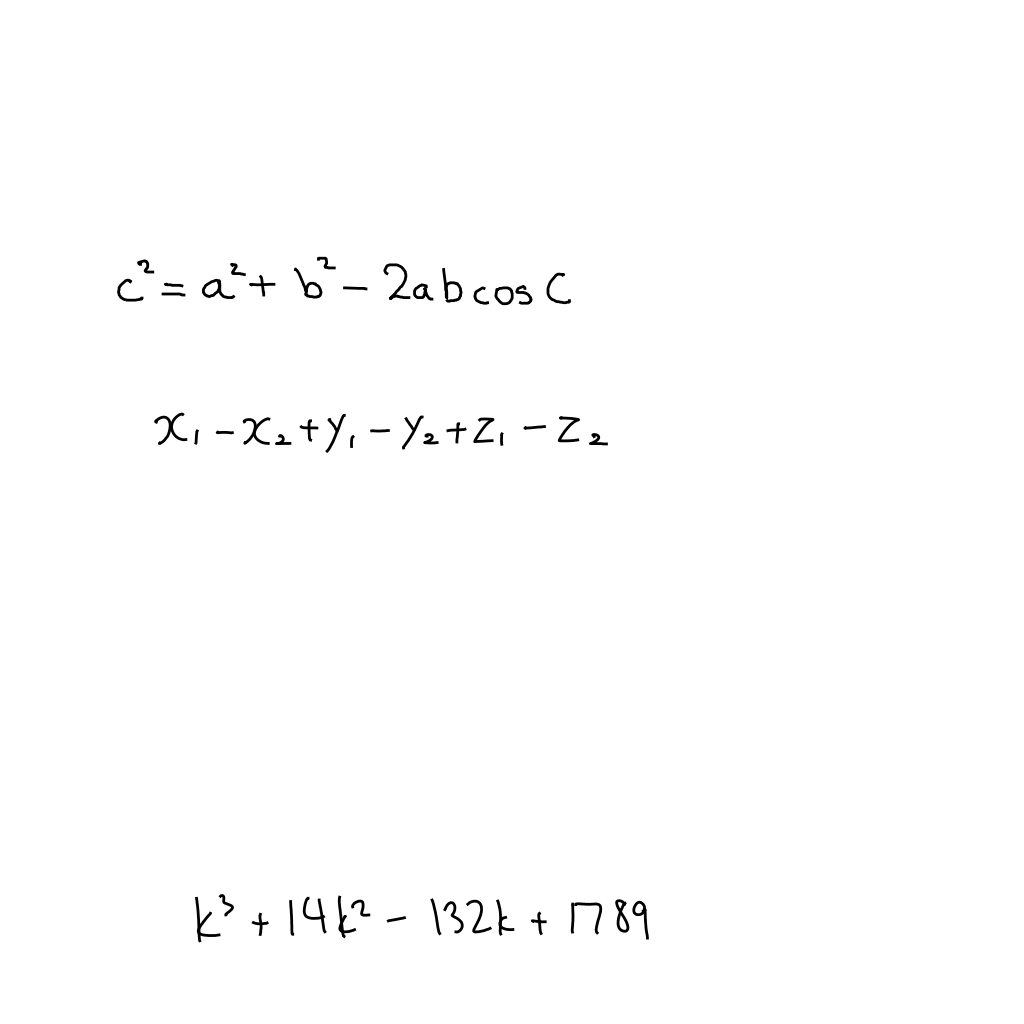 c² = a² + b² − 2ab cos C
x₁ − x₂ + y₁ − y₂ + z₁ − z₂
k³ + 14k² − 132k + 1789